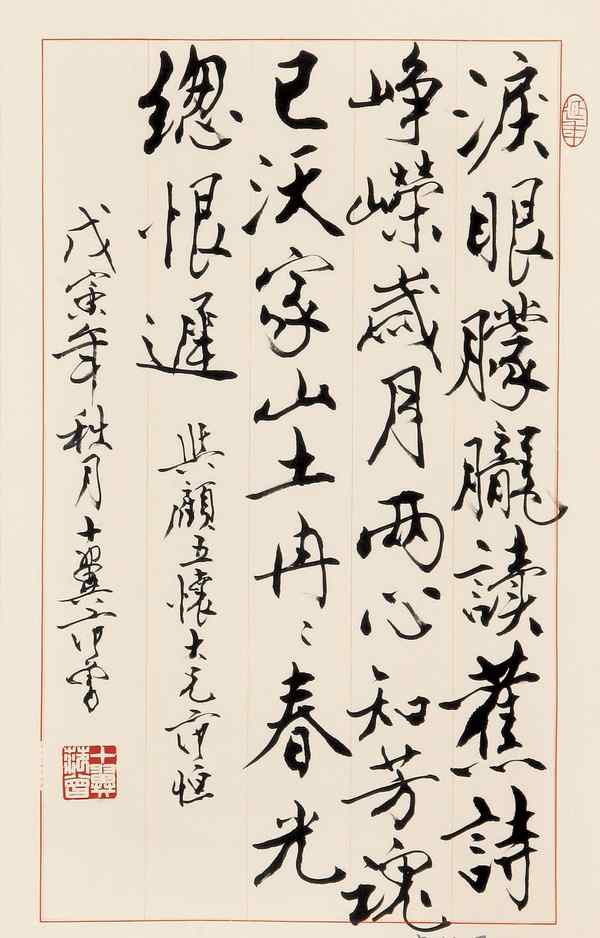 淚眼朦朧讀舊詩
崢嶸歲月兩心知芳魂
已沃家山土冉〻春光
總恨遲
與顧五懷大兄
戊寅年秋月十翼范曾
十翼
范曾